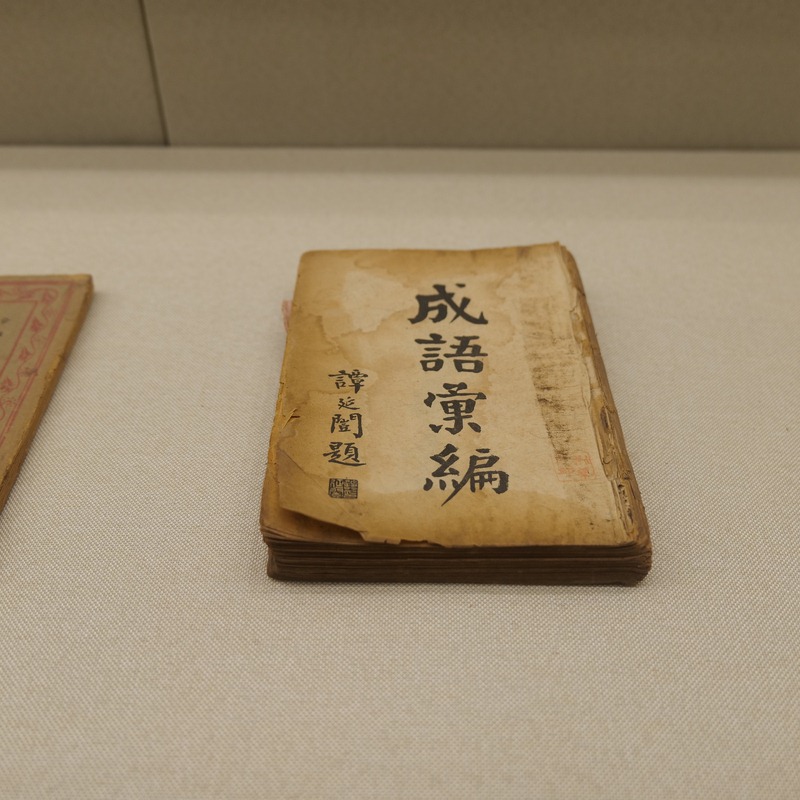 成語彙編
譚延闓題